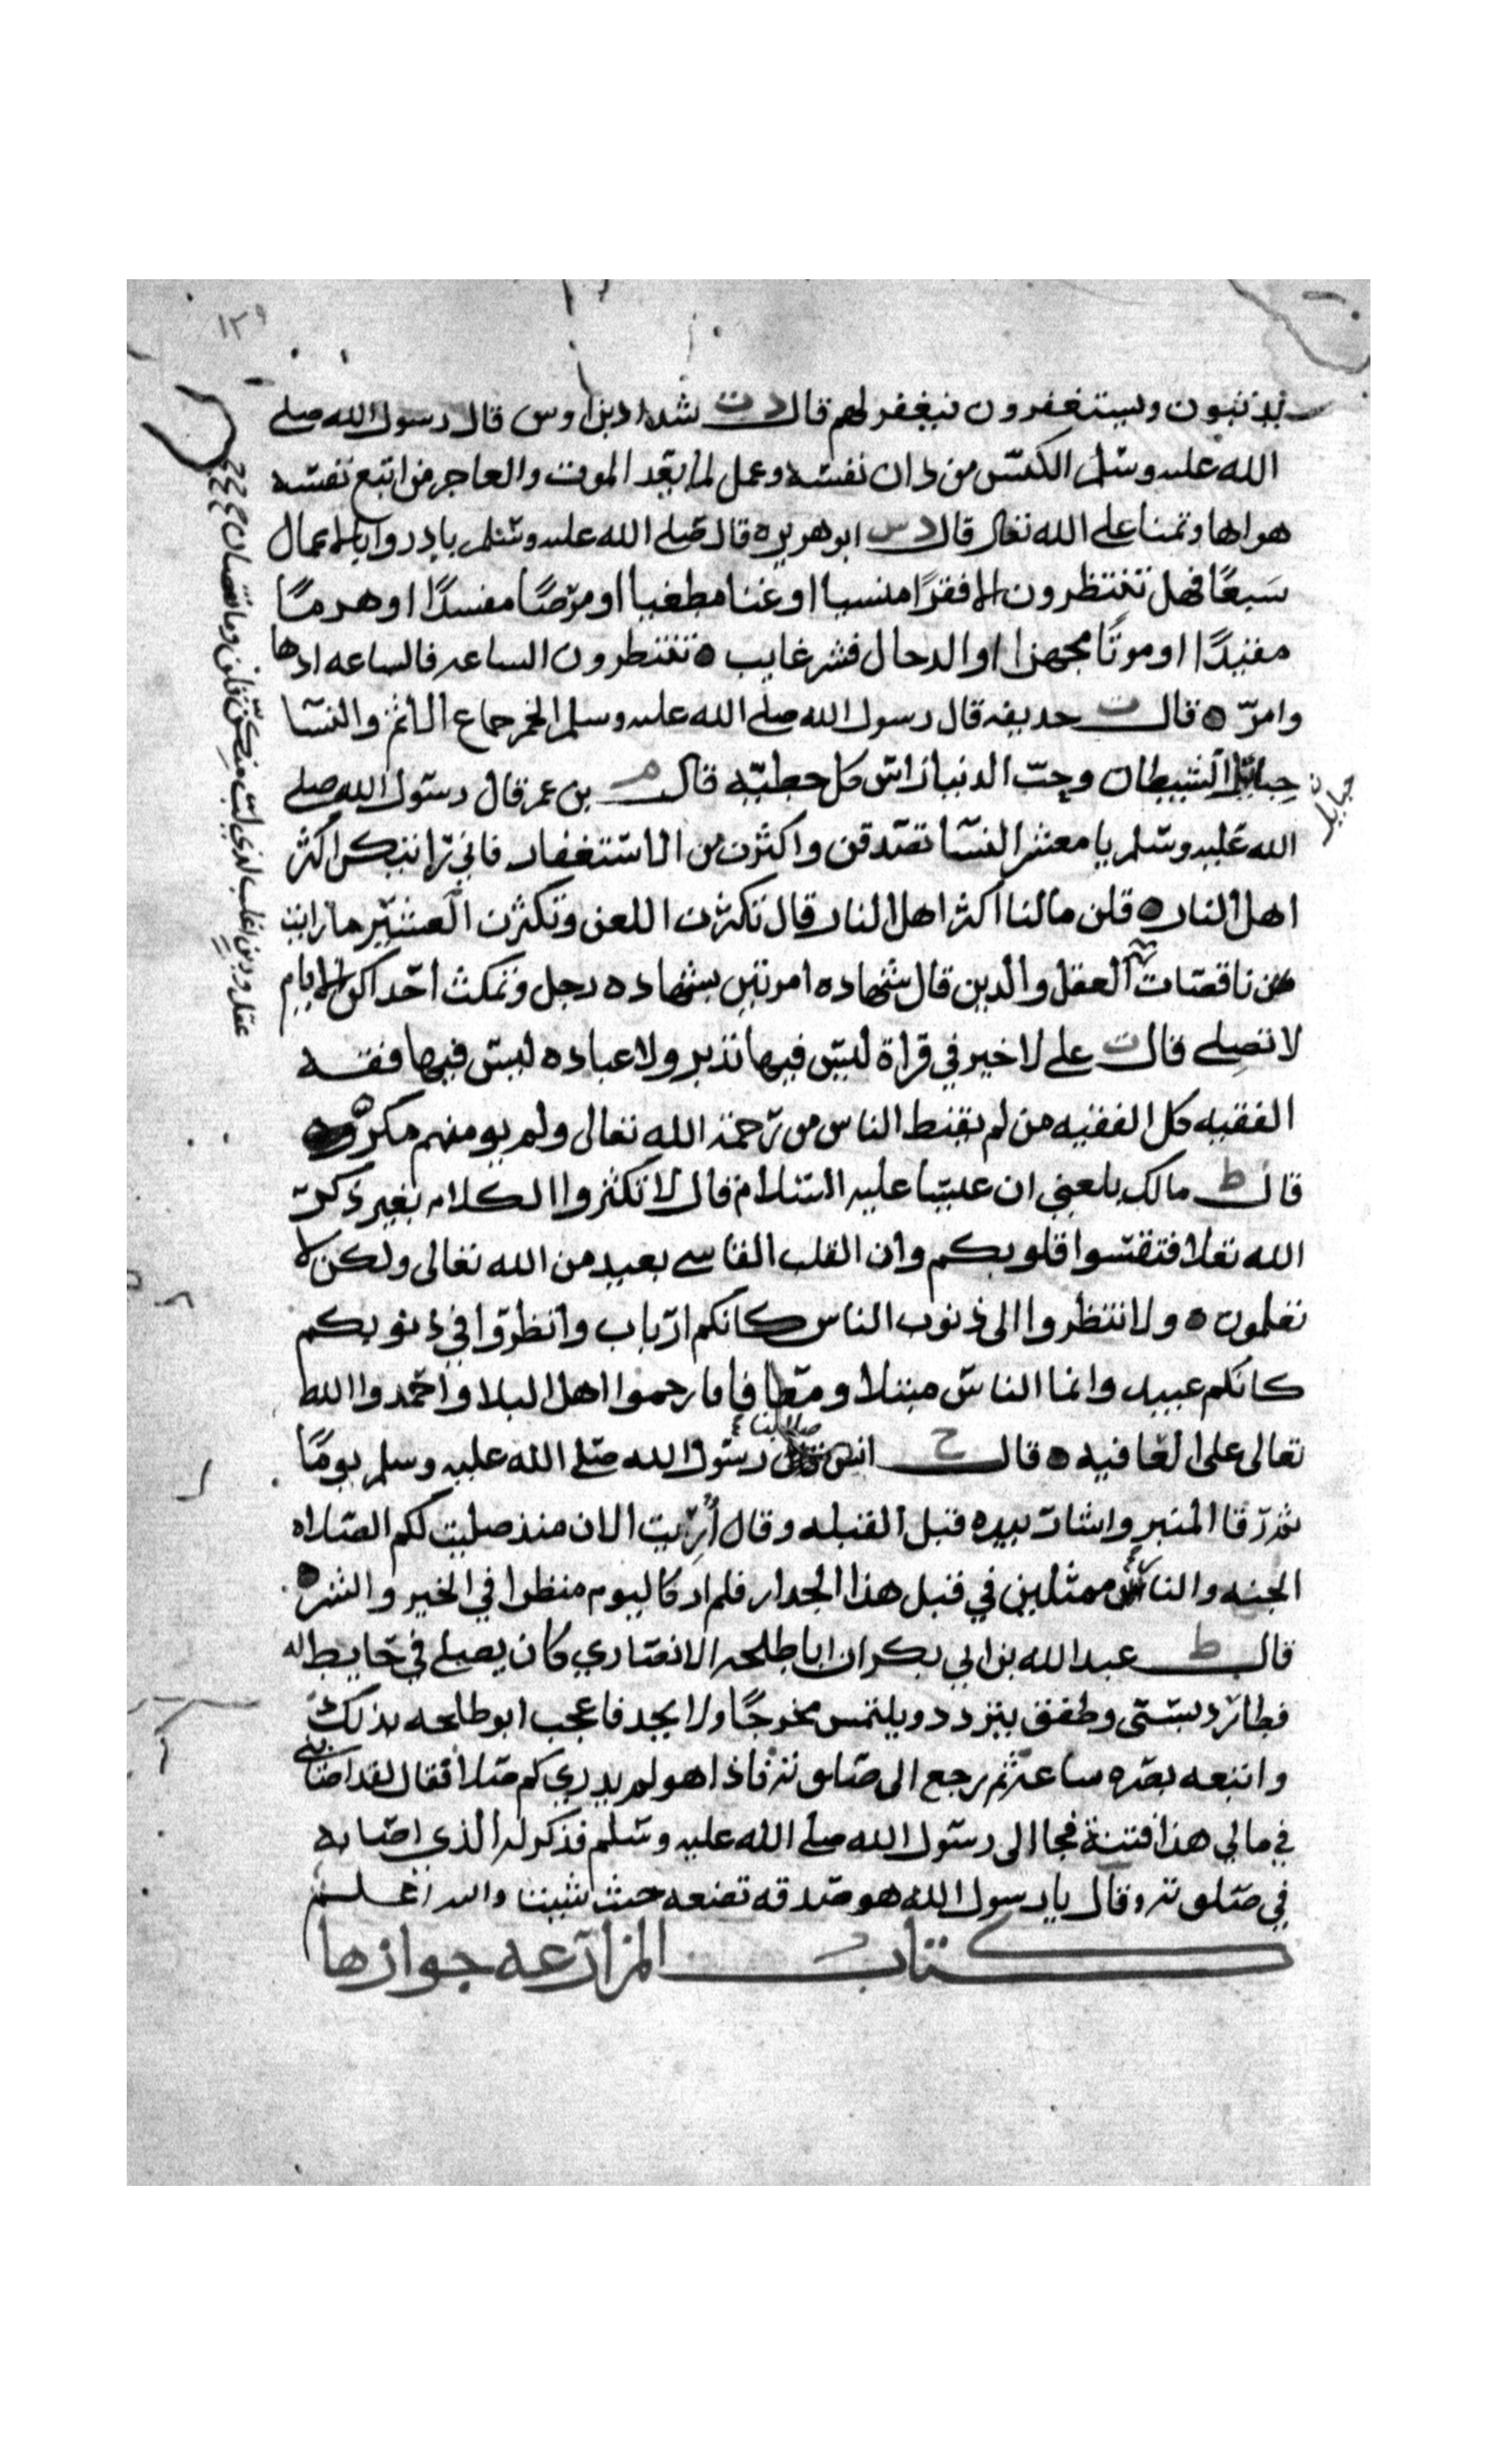 ١٢٩
يذنبون ويستغفرون فيغفر لهم قال د ت شداد بن اوس قال رسول الله صلى
الله عليه وسلم الكيس من دان نفسه وعمل لما بعد الموت والعاجز من اتبع نفسه
هواها وتمنا على الله تعالى قال د س ابو هريره قال صلى الله عليه وسلم بادروا بالاعمال
سبعًا فهل تنتظرون الا فقرًا منسيا او غنا مطغيا او مرضًا مفسدًا او هرمًا
مفندًا او موتًا مجهزا او الدجال فشر غايب تنتظرون الساعه فالساعه ادها
وامرّ قال ت حذيفه قال رسول الله صلى الله عليه وسلم الخمر جماع الاثم والنسا
حبايل الشيطان وحب الدنيا راس كل خطيّه قال م بن عمر قال رسول الله صلى
حبايل
الله عليه وسلم يا معشر النسا تصدقن واكثرن من الاستغفار فاني رايتكن اكثر
اهل النار قلن ما لنا اكثر اهل النار قال تكثرن اللعن وتكثرن العشير ما رايت
من ناقصات العقل والدين قال شهاده امرتين بشهاده رجل وتمكث احداكن الايام
عقل ودين اغلب لذي لب منكن قلن وما نقصان
لا تصلي قال ت علي لا خير في قراة ليس فيها تدبر ولا عباده ليس فيها فقه
الفقيه كل الفقيه من لم يقنط الناس من رحمة الله تعالى ولم يومنهم مكره
قال ط مالك بلغني ان عيسا عليه السلام قال لا تكثروا الكلام بغير ذكر
الله تعلا فتقسوا قلوبكم وان القلب القاسي بعيد من الله تعالى ولكن لا
تعلمون ولا تنظروا الى ذنوب الناس كانكم ارباب وانظروا في ذنوبكم
كانكم عبيد وانما الناس مبتلا ومعافا فارحموا اهل البلا واحمدوا الله
تعالى على العافيه قال ح انس صلا لنا رسول الله صلى الله عليه وسلم يومًا
ثم رقا المنبر واشار بيده قبل القبله وقال أُرِيت الان منذ صليت لكم الصلاه
الجنه والنار ممثلين في قبل هذا الجدار فلم ار كاليوم منظرا في الخير والشر
قال ط عبد الله بن ابي بكر ان ابا طلحه الانصاري كان يصلي في حايط له
فطار دبسي وطفق يتردد ويلتمس مخرجًا ولا يجد فاعجب ابو طلحه بذلك
واتبعه بصره ساعة ثم رجع الى صلوته فاذا هو لم يدري كم صلا فقال لقد اصابني
في مالي هذا فتنة فجا الى رسول الله صلى الله عليه وسلم فذكر له الذي اصابه
في صلوته وقال يا رسول الله هو صدقه تضعه حيث شيت والله اعلم
كتاب المزارعه جوازها